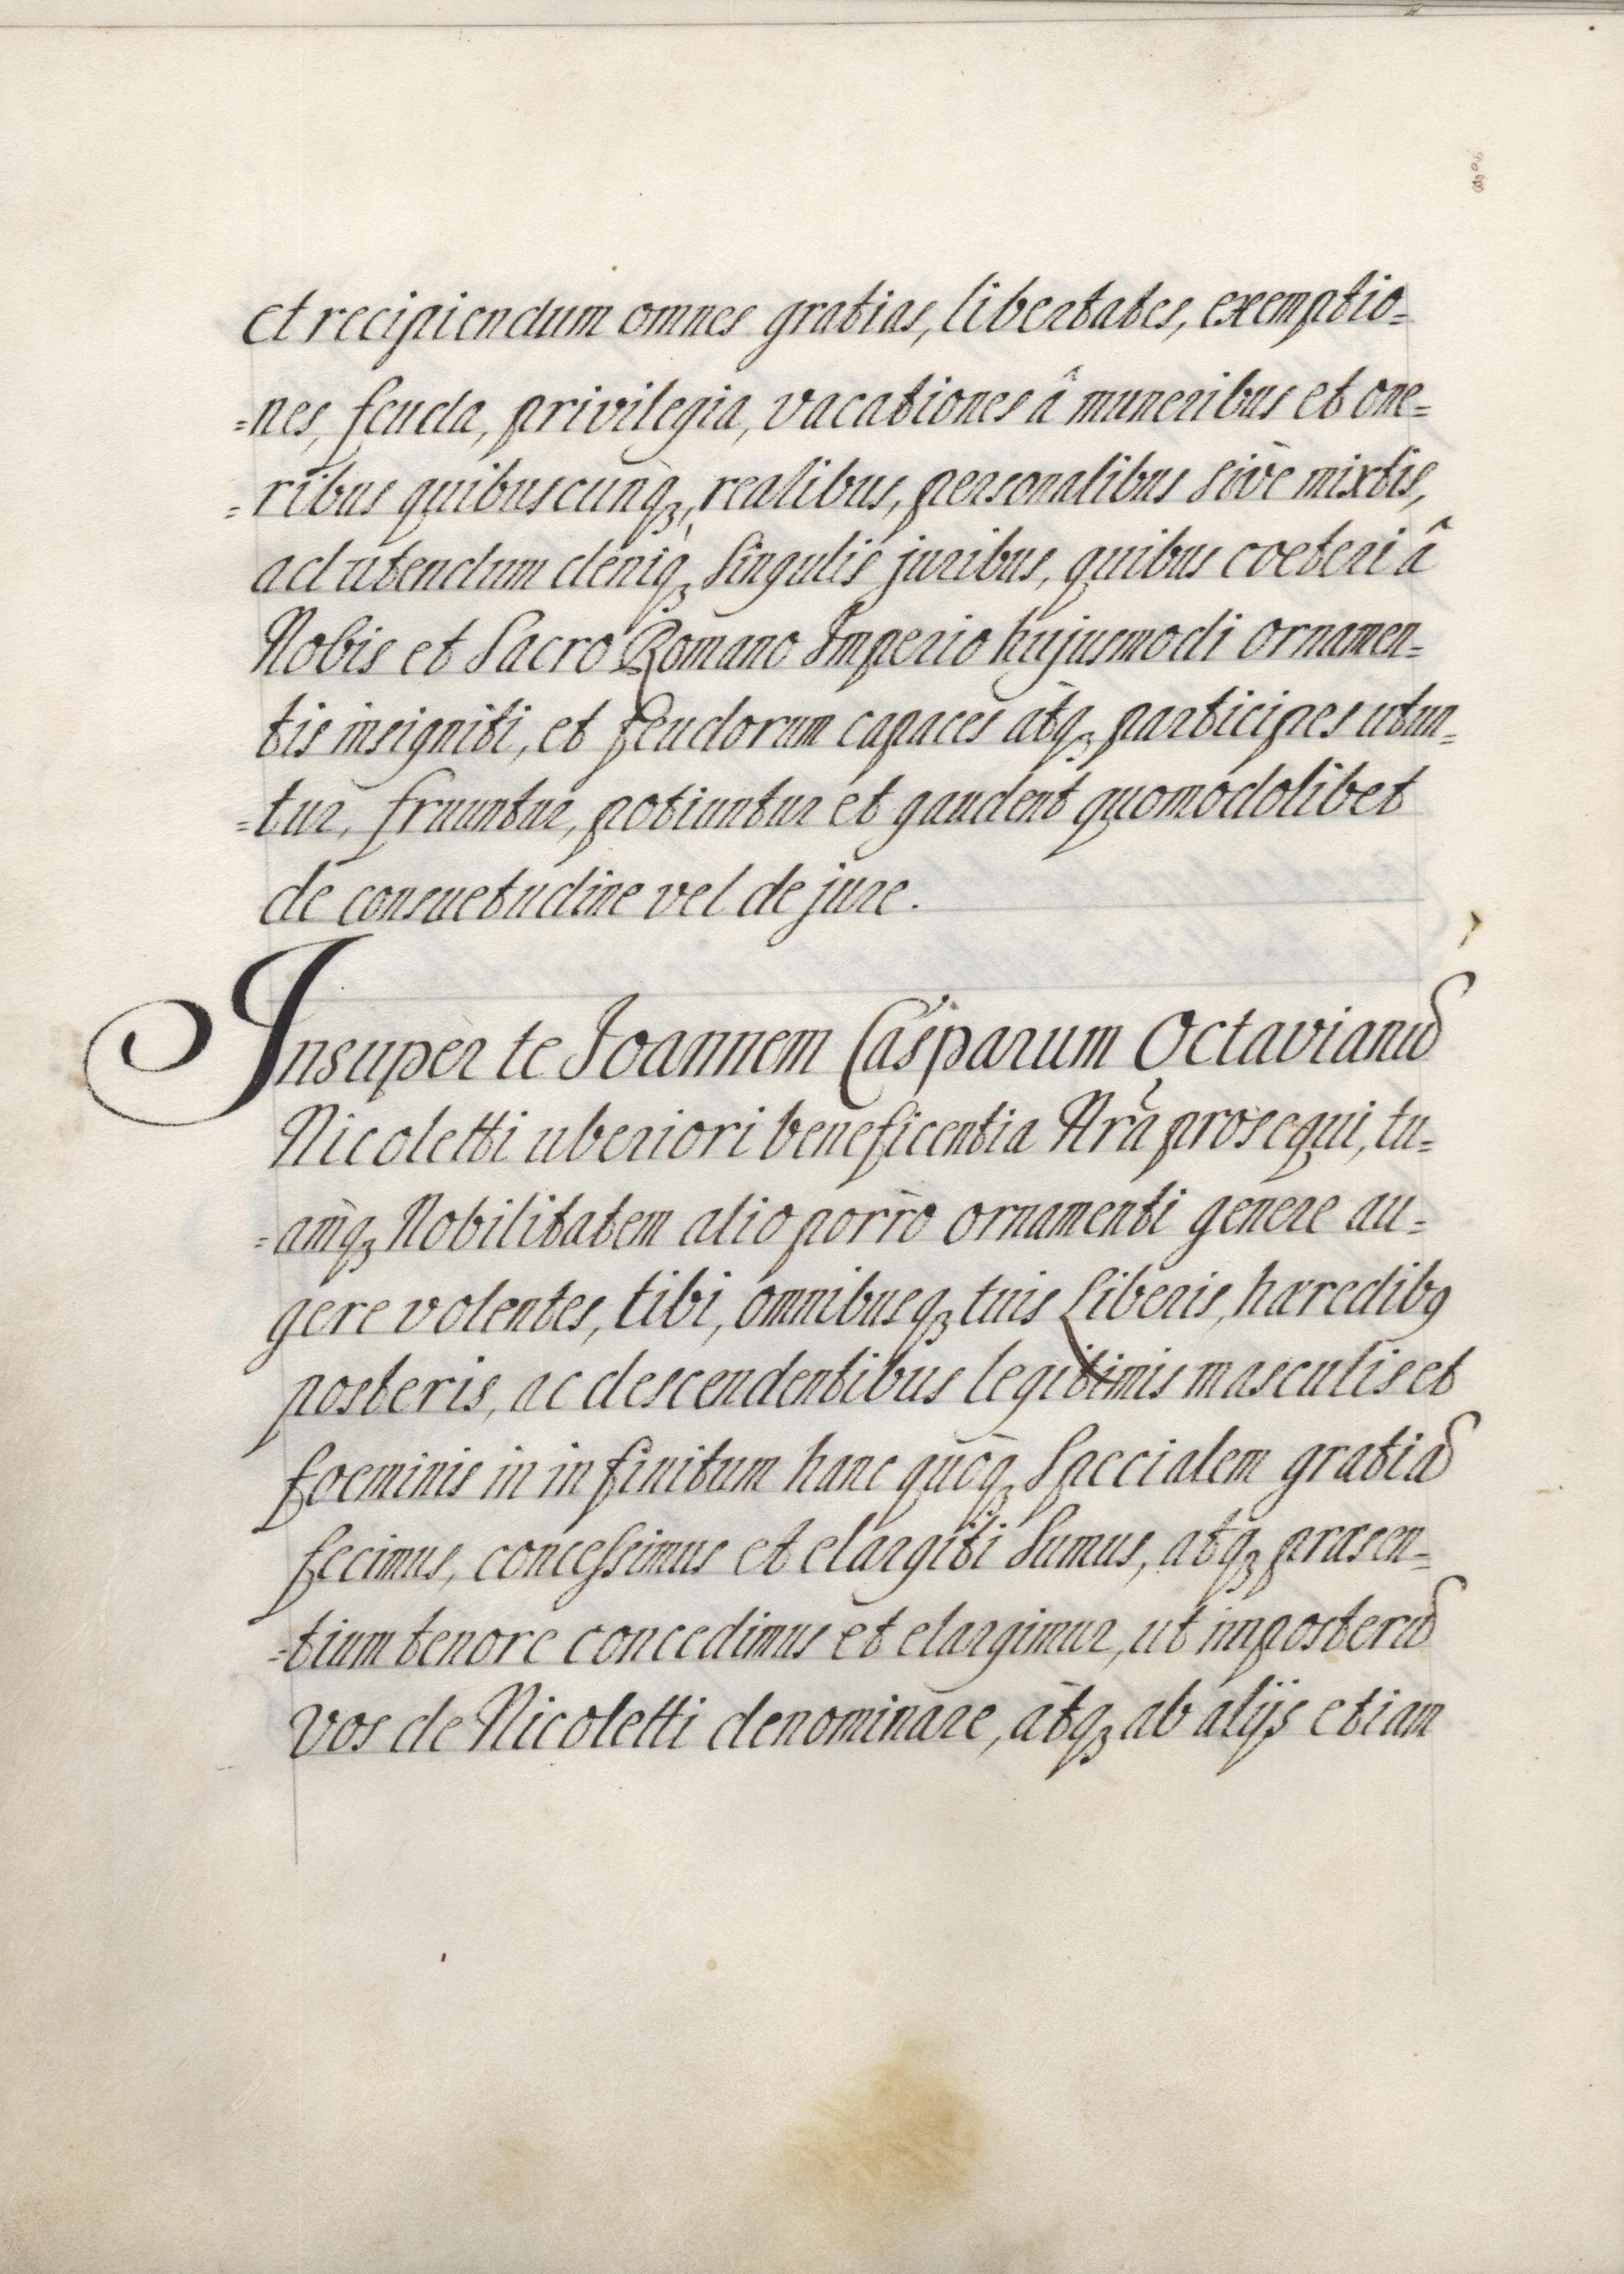 et recipiendum omnes gratias, libertates, exemptio=
=nes, feuda, privilegia, vacationes â muneribus et one=
=ribus quibuscunq̀ꝫ, realibus, personalibus sivè mixtis,
ad utendum deniq̀ꝫ Singulis juribus, quibus coeteri â
Nobis et Sacro Romano Imperio hujusmodi ornamen=
tis insigniti, et feudorum capaces àtqꝫ participes utun=
=tur, fruuntur, potiuntur et gaudent quomodolibet
de consuetudine vel de jure.
Insuper te Joannem Casparum Octavianū
Nicoletti uberiori beneficentia Nr̃a prosequi, tu=
=am̀qꝫ Nobilitatem alio porrò ornamenti genere au=
gere volentes, tibi, omnibusqꝫ tuis Liberis, hæredibꝰ
posteris, ac descendentibus legitimis masculis et
foeminis in infinitum hanc quòqꝫ Specialem gratiā
fecimus, concessimus et elargiti Sumus, atqꝫ præsen=
=tium tenore concedimus et elargimur, ut imposterū
vos de Nicoletti denominare, àtqꝫ ab alijs etiam